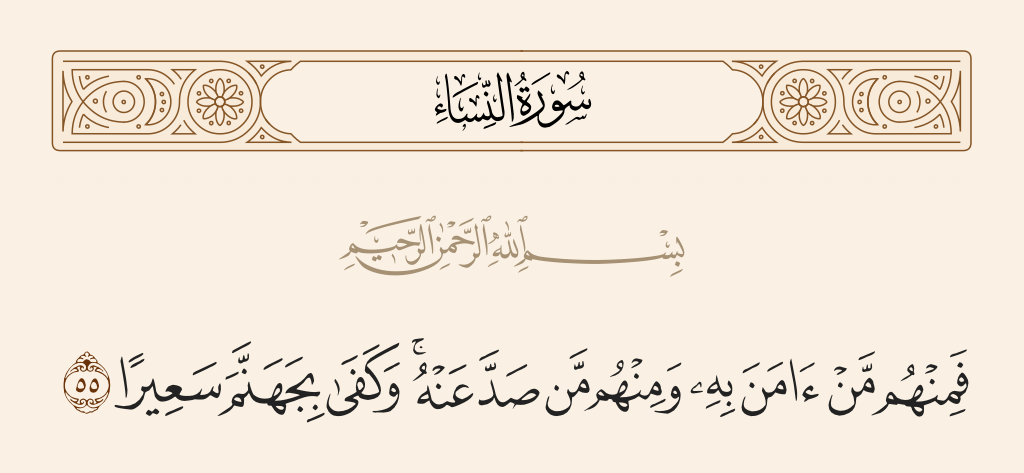 سُورَةُ النِّسَاءِ
بِسْمِ ٱللَّهِ ٱلرَّحْمَٰنِ ٱلرَّحِيمِ
فَمِنْهُم مَّنْ ءَامَنَ بِهِۦ وَمِنْهُم مَّن صَدَّ عَنْهُ ۚ وَكَفَىٰ بِجَهَنَّمَ سَعِيرًا ٥٥